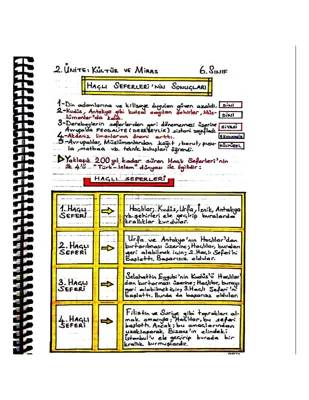 2. ÜNİTE: KÜLTÜR VE MİRAS 6. SINIF
HAÇLI SEFERLERİ'NİN SONUÇLARI
1-Din adamlarına ve kiliseye duyulan güven azaldı. DİNİ
2-Kudüs, Antakya gibi kutsal sayılan şehirler, Müs-
lümanlar'da kaldı. DİNİ
3-Derebeylerin seferlerden geri dönememesi üzerine
Avrupa'da FEODALİTE (DEREBEYLİK) sistemi zayıfladı. SİYASİ
4-Akdeniz limanlarının önemi arttı. EKONOMİK
5-Avrupalılar, Müslümanlardan kağıt, barut, pusu-
la, matbaa vb. teknik buluşları öğrendi.
Yaklaşık 200 yıl kadar süren Haçlı Seferleri'nin
ilk 4'ü "Türk-İslam" dünyası ile ilgilidir:
HAÇLI SEFERLERİ
1. HAÇLI
SEFERİ
Haçlılar; Kudüs, Urfa, İznik, Antakya
vb. şehirleri ele geçirip buralarda
krallıklar kurdular.
2. HAÇLI
SEFERİ
Urfa ve Antakya'nın Haçlılar'dan
kurtarılması üzerine; Haçlılar, buraları
geri alabilmek için; 2. Haçlı Seferi'ni
başlattı. Başarısız oldular.
3. HAÇLI
SEFERİ
Selahattin Eyyubi'nin Kudüs'ü Haçlılar'
dan kurtarması üzerine; Haçlılar, burayı
geri alabilmek için; 3. Haçlı Seferi'ni
başlattı. Bunda da başarısız oldular.
4. HAÇLI
SEFERİ
Filistin ve Suriye gibi toprakları al-
mak amacıyla; Haçlılar, bu seferi
başlattı. Ancak; bu amaçlarından
uzaklaşarak, Bizans'ın elindeki
İstanbul'u ele geçirip burada bir
krallık kurmuşlardır.